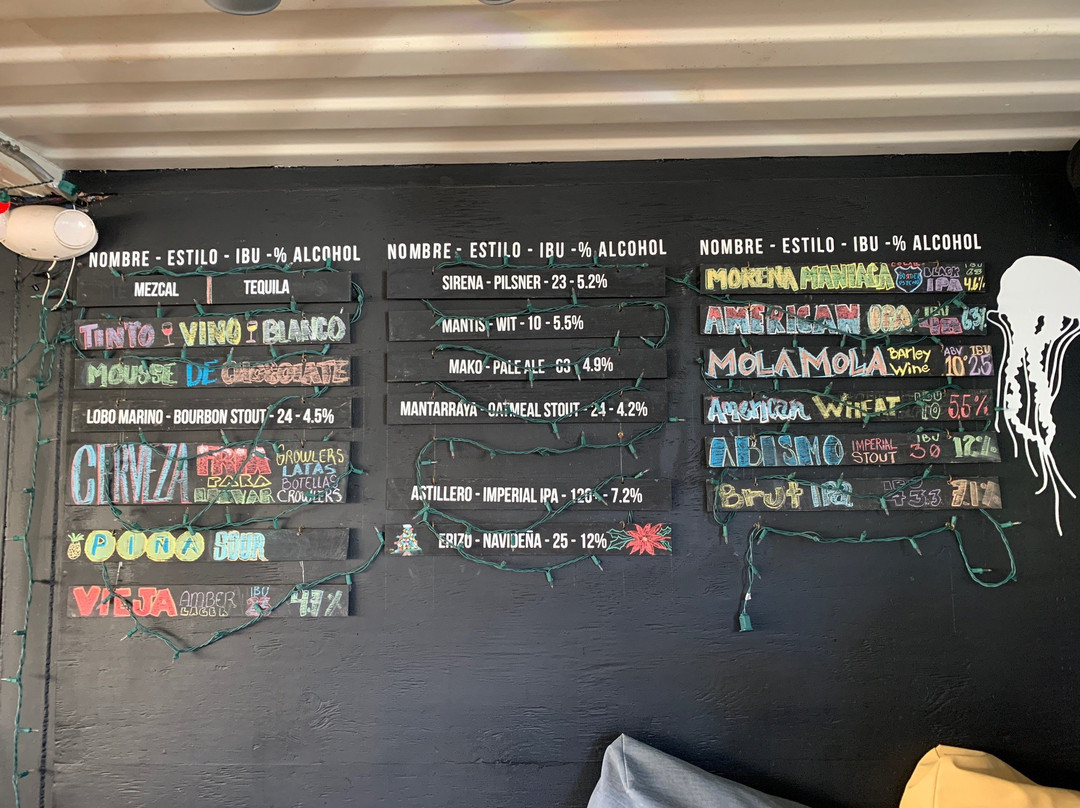 NOMBRE - ESTILO - IBU -% ALCOHOL
MEZCAL TEQUILA
TINTO VINO BLANCO
MOUSSE DE CHOCOLATE
LOBO MARINO - BOURBON STOUT - 24 - 4.5%
CERVEZA FRIA PARA LLEVAR GROWLERS LATAS BOTELLAS CROWLERS
PIÑA SOUR
VIEJA AMBER LAGER IBU 23
NOMBRE - ESTILO - IBU -% ALCOHOL
SIRENA - PILSNER - 23 - 5.2%
MANTIS - WIT - 10 - 5.5%
MAKO - PALE ALE - 4.9%
MANTARRAYA - OATMEAL STOUT - 24 - 4.2%
ASTILLERO - IMPERIAL IPA - - 7.2%
ERIZO - NAVIDEÑA - 25 - 12%
NOMBRE - ESTILO - IBU -% ALCOHOL
MORENA MANIACA BLACK IPA IBU 4.6%
AMERICAN IBU
MOLA MOLA Barley Wine ABV 10° IBU 25
American WHEAT IBU 5.5%
ABISMO IMPERIAL STOUT IBU 30 12%
Brut IPA 7.1%